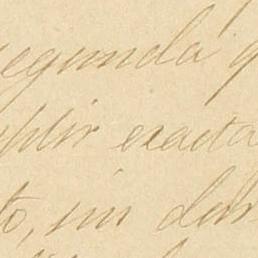 segunda q
plir exacta
to, sin deb